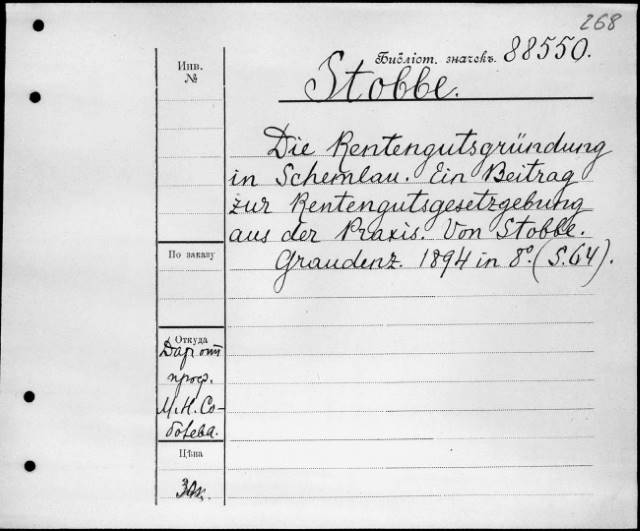 268
Библіот. значекъ. 88550.
Stobbe.
Инв.
№
Die Rentengutsgründung
in Schemlau. Ein Beitrag
zur Rentengutsgesetzgebung
aus der Praxis. Von Stobbe.
Graudenz. 1894 in 8º. (S. 64).
По заказу
Откуда
Дар от
проф.
М. Н. Со-
болева.
Цѣна